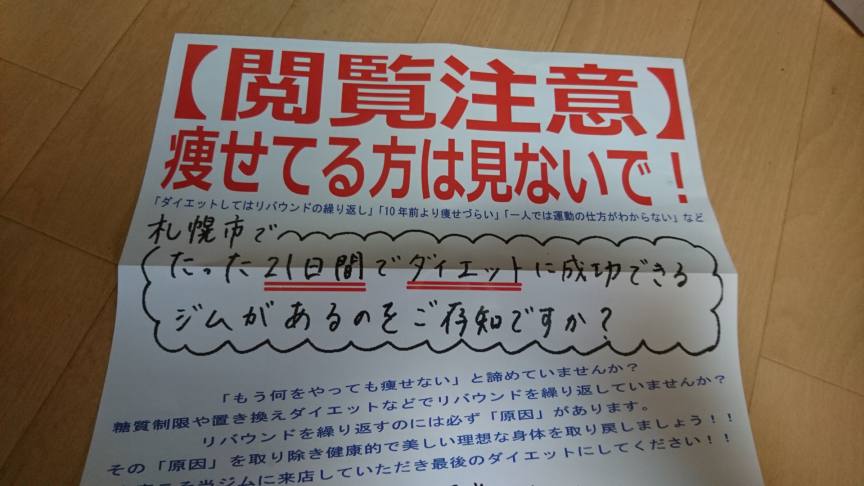 【閲覧注意】
痩せてる方は見ないで！
「ダイエットしてはリバウンドの繰り返し」「10年前より痩せづらい」「一人では運動の仕方がわからない」など
札幌市で
たった21日間でダイエットに成功できる
ジムがあるのをご存知ですか？
「もう何をやっても痩せない」と諦めていませんか？
糖質制限や置き換えダイエットなどでリバウンドを繰り返していませんか？
リバウンドを繰り返すのには必ず「原因」があります。
その「原因」を取り除き健康的で美しい理想な身体を取り戻しましょう！！
当ジムに来店していただき最後のダイエットにしてください！！